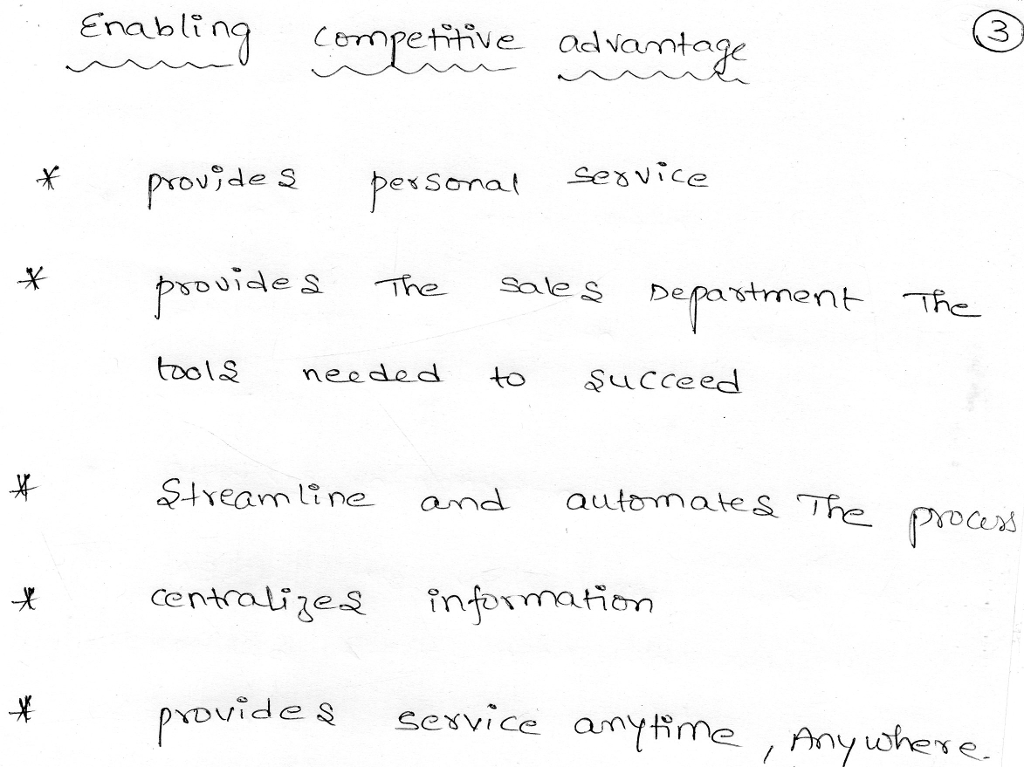 Enabling competitive advantage
3
* provides personal service
* provides The sales Department The
tools needed to succeed
* Streamline and automates The process
* centralizes information
* provides service anytime, Anywhere.